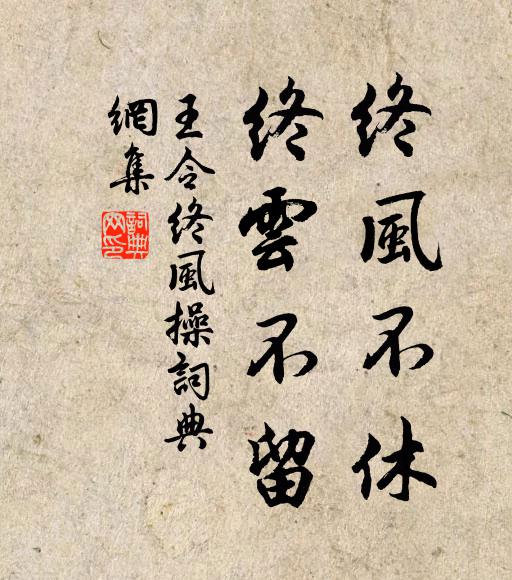 終風不休
終雲不留
王令終風操詞典
網集
詞典网印